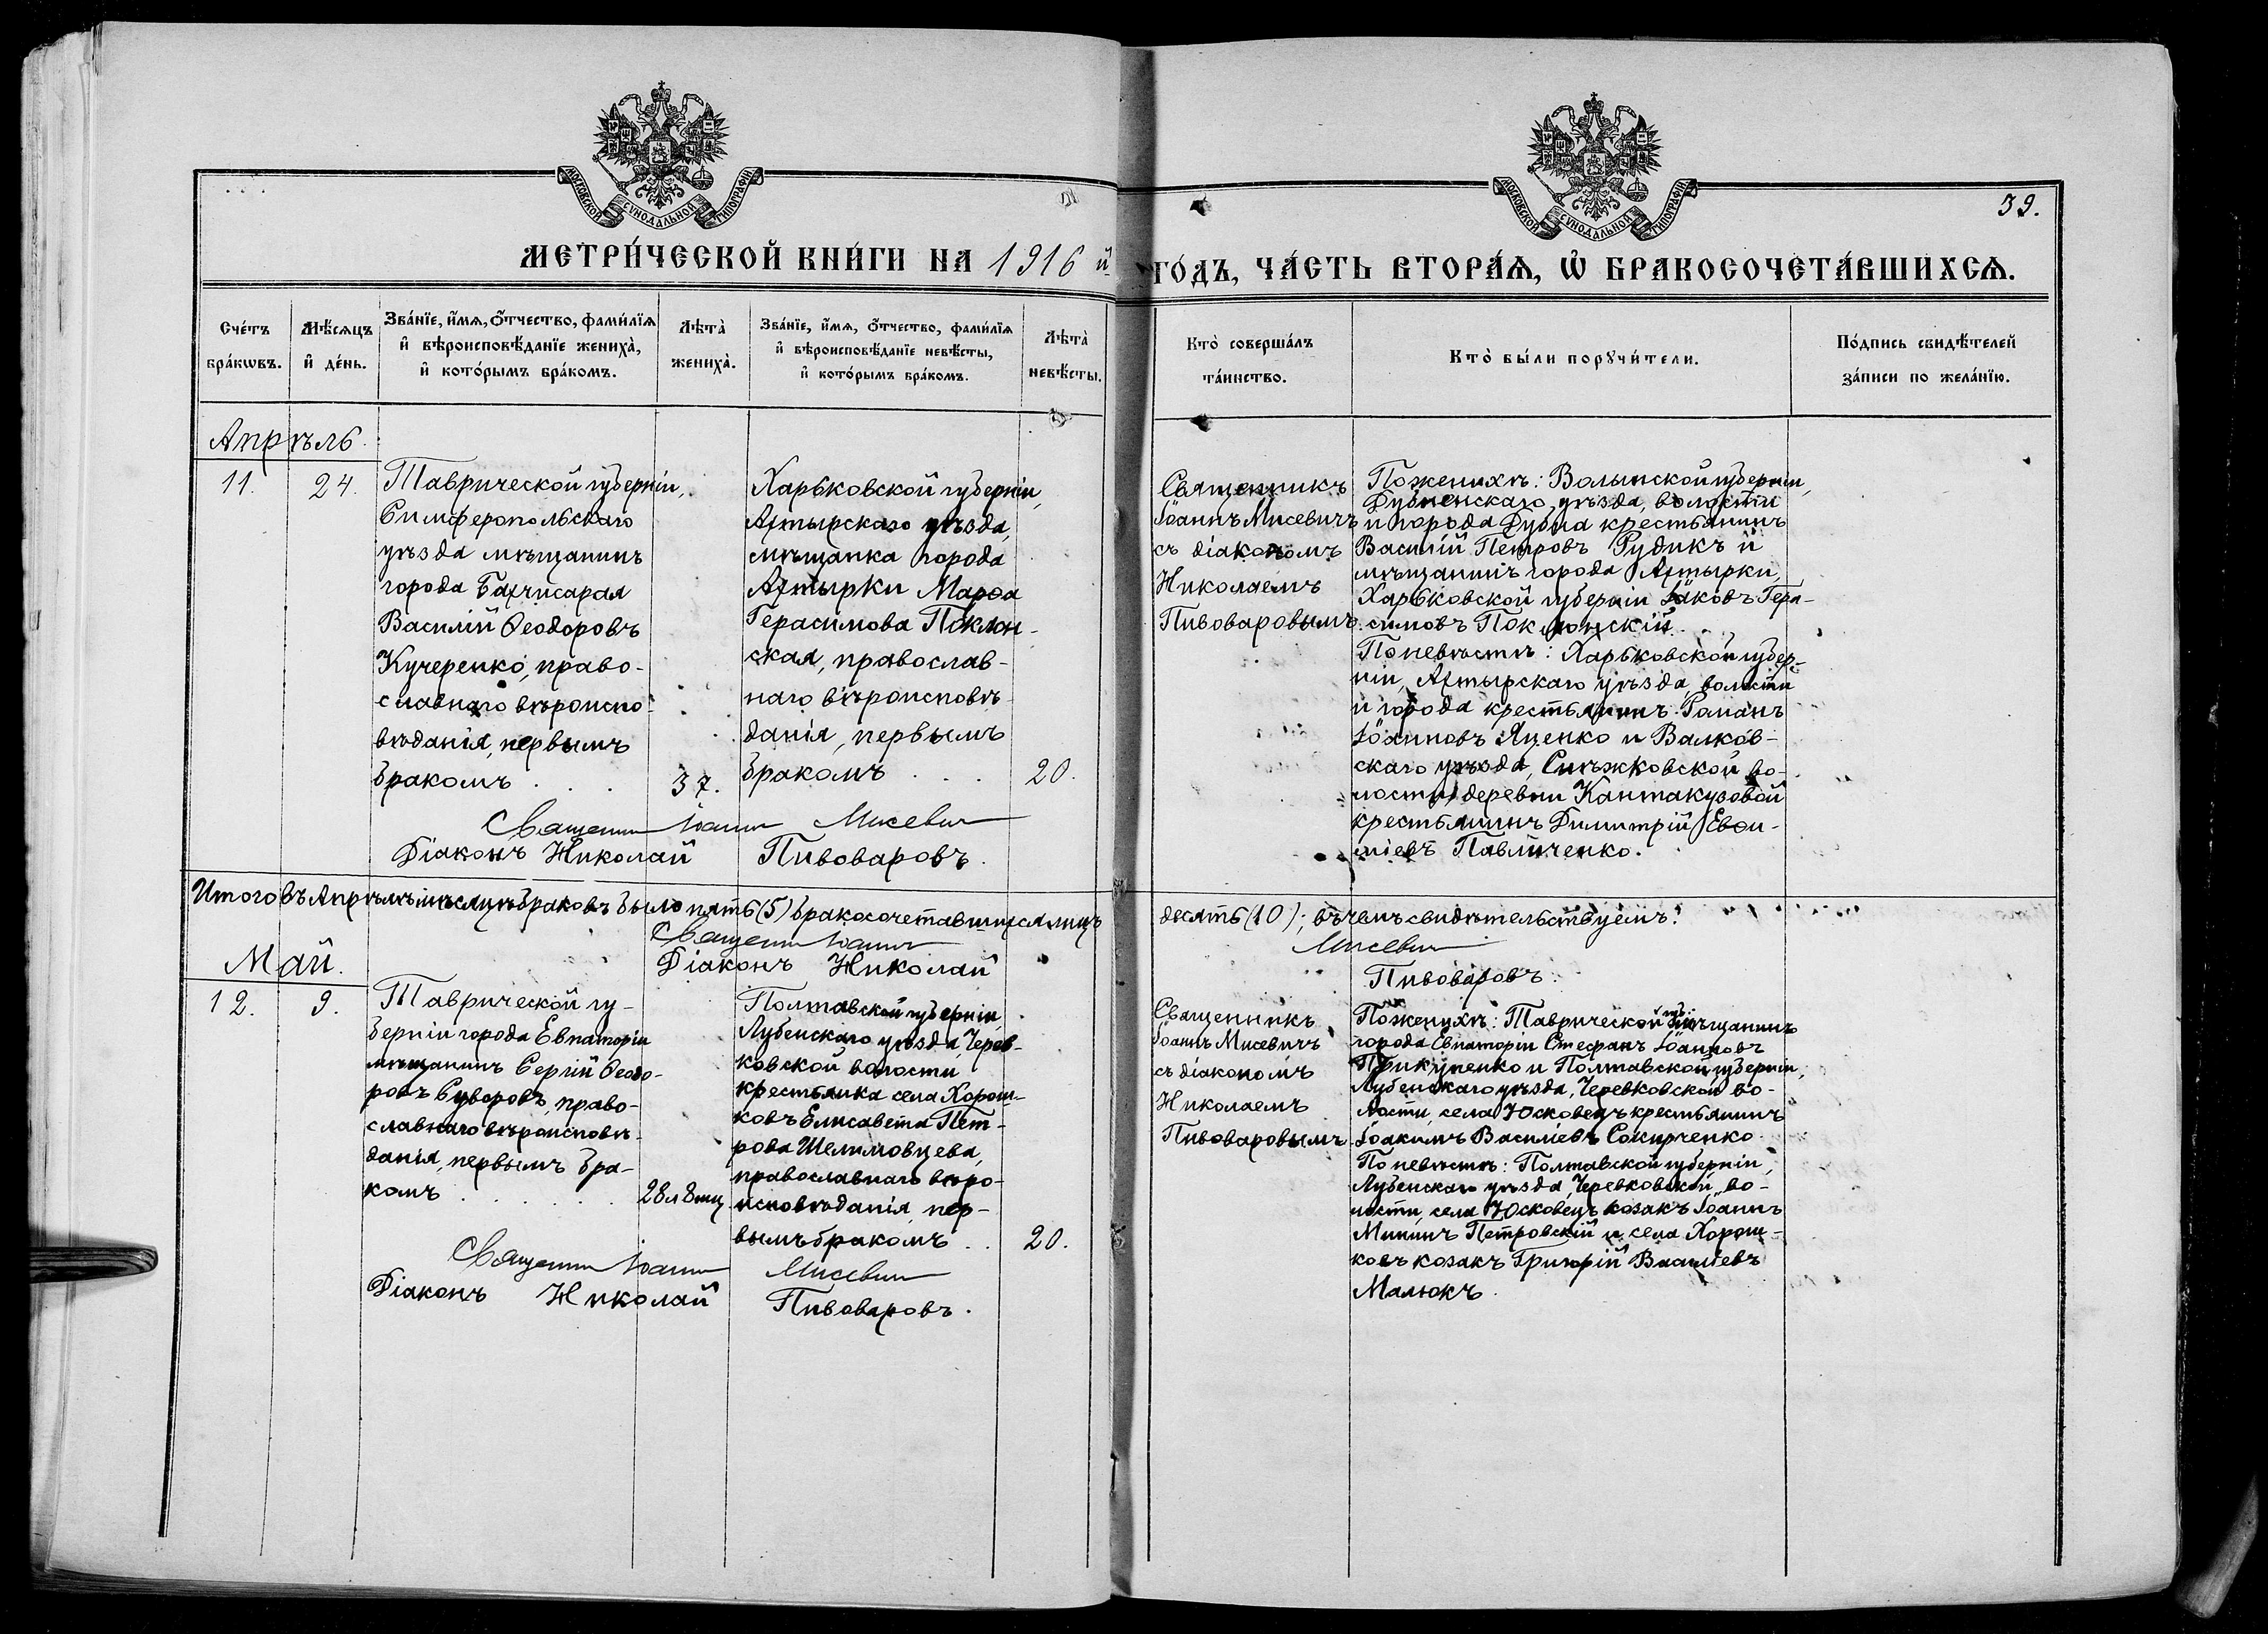 МОСКОВСКОЙ СѴНОДАЛЬНОЙ ТИПОГРАФІИ
МОСКОВСКОЙ СѴНОДАЛЬНОЙ ТИПОГРАФІИ
39.
МЕТРИ́ЧЕСКОЙ КНИ́ГИ НА 1916 й
ГО́ДЪ, ЧА́СТЬ ВТОРА́Ѧ, Ѡ҆ БРАКОСОЧЕТА́ВШИХСѦ.
Сче́тъ
бра́кѡвъ.
Мѣ́сяцъ
и҆ де́нь.
Зва́нїе, и҆́мѧ, ѻ҆́тчество, фами́лїѧ
и҆ вѣроисповѣ́данїе жениха̀,
и҆ кото́рымъ бра́комъ.
Лѣта̀
жениха̀.
Зва́нїе, и҆́мѧ, ѻ҆́тчество, фами́лїѧ
и҆ вѣроисповѣ́данїе невѣ́сты,
и҆ кото́рымъ бра́комъ.
Лѣта̀
невѣ́сты.
Кто̀ соверша́лъ
та́инство.
Кто̀ бы́ли порꙋчи́тели.
По́дпись свидѣ́телей
за́писи по жела́нїю.
Апрѣль
11.
24.
Таврической губерніи,
Симферопольскаго
уѣзда мѣщанинъ
города Бахчисарая
Василій Ѳеодоровъ
Кучеренко, право-
славнаго вѣроиспо-
вѣданія, первымъ
бракомъ . . .
37.
Харьковской губерніи,
Ахтырскаго уѣзда,
мѣщанка города
Ахтырки Марѳа
Герасимова Поклон-
ская, православ-
наго вѣроисповѣ-
данія, первымъ
бракомъ . . .
20.
Священникъ
Іоаннъ Мисевичъ
съ діакономъ
Николаемъ
Пивоваровымъ.
По женихѣ: Волынской губерніи,
Дубненскаго уѣзда, волости
и города Дубна крестьянинъ
Василій Петровъ Рудикъ и
мѣщанинъ города Ахтырки,
Харьковской губерніи Іаковъ Гера-
симовъ Поклонскій.
По невѣстѣ: Харьковской губер-
ніи, Ахтырскаго уѣзда, волости
и города крестьянинъ Романъ
Іоанновъ Яценко и Валков-
скаго уѣзда, Снѣжковской во-
лости, деревни Кантакузовой
крестьянинъ Димитрій Евѳи-
міевъ Павличенко.
Священникъ Іоаннъ Мисевичъ
Діаконъ Николай Пивоваровъ.
Итого въ Апрѣлѣ мѣсяцѣ браковъ было пять (5) бракосочетавшихся лицъ
десять (10); въ чемъ свидѣтельствуемъ:
Священникъ Іоаннъ Мисевичъ
Діаконъ Николай Пивоваровъ.
Май.
12.
9.
Таврической гу-
берніи города Евпаторіи
мѣщанинъ Сергій Ѳеодо-
ровъ Суворовъ, право-
славнаго вѣроисповѣ-
данія, первымъ бра-
комъ . . . . .
28 л 8 мц
Полтавской губерніи,
Лубенскаго уѣзда, Черев-
ковской волости
крестьянка села Хорош-
ковъ Елисавета Пет-
рова Шелимовцева,
православнаго вѣро-
исповѣданія, пер-
вымъ бракомъ . .
20.
Священникъ
Іоаннъ Мисевичъ
съ діакономъ
Николаемъ
Пивоваровымъ
По женихѣ: Таврической губ. мѣщанинъ
города Евпаторіи Стефанъ Іоанновъ
Прикупенко и Полтавской губерніи,
Лубенскаго уѣзда, Черевковской во-
лости, села Юсковецъ крестьянинъ
Іоакимъ Василіевъ Сокирченко.
По невѣстѣ: Полтавской губерніи,
Лубенскаго уѣзда, Черевковской во-
лости, села Юсковецъ козакъ Іоаннъ
Мининъ Петровскій и села Хорош-
ковъ козакъ Григорій Василіевъ
Малюкъ.
Священникъ Іоаннъ Мисевичъ
Діаконъ Николай Пивоваровъ.